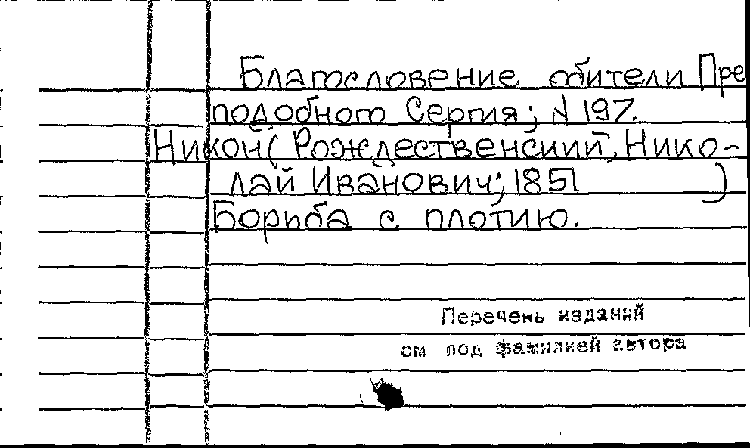 Благословение обители Пре
подобного Сергия; № 197.
Никон (Рождественский, Нико-
лай Иванович; 1851 )
Борьба с плотию.
Перечень изданий
см под фамилией автора